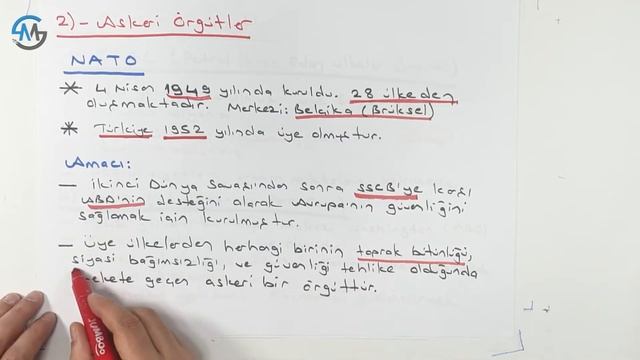 2)- Askeri Örgütler
NATO
* 4 Nisan 1949 yılında kuruldu. 28 ülkeden
oluşmaktadır. Merkezi: Belçika (Brüksel)
* Türkiye 1952 yılında üye olmuştur.
Amacı:
– İkinci Dünya Savaşı'ndan sonra SSCB'ye karşı
ABD'nin desteğini alarak Avrupa'nın güvenliğini
sağlamak için kurulmuştur.
– Üye ülkelerden herhangi birinin toprak bütünlüğü,
siyasi bağımsızlığı, ve güvenliği tehlike olduğunda
geçen askeri bir örgüttür.
JUMBO